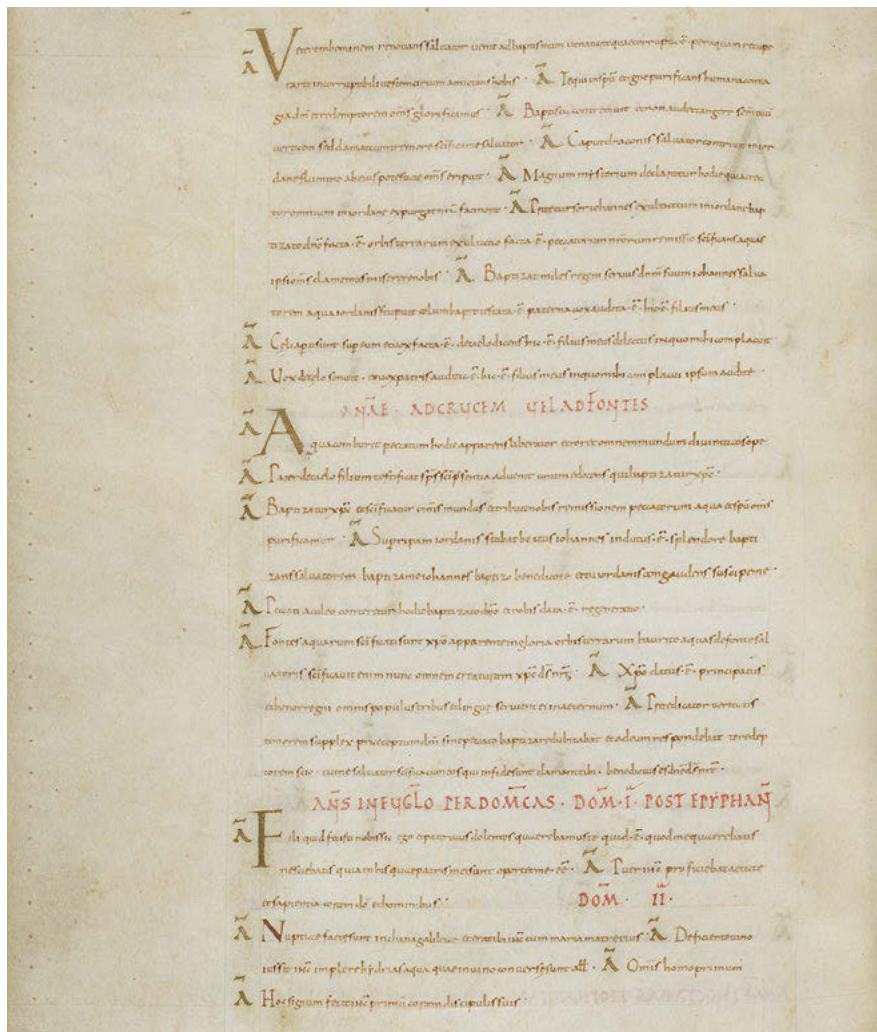 Ā Veterem hominem renovans salvator venit ad baptismum ut naturam quae corrupta · ē · per aquam recupe
raret incorruptibili veste nos · Ā Te qui in spū et igne purificas humana conta
gia dm et redemptorem oms glorificamus · Ā Baptista contremuit et non audet tangere scm dei
verticem sed clamat cum tremore scifica me salvator · Ā Caput draconis salvator contrivit in ior
dane flumine ab eius potestate oms eripuit · Ā Magnum mysterium declaratur hodie quia crea
tor omnium in iordane expurgat nra facinora · Ā Precursor iohannes exultat cum in iordane bap
tizato dno facta · ē · orbis terrarum exultatio facta · ē · peccatorum nrorum remissio scificans aquas
ipsi oms clamemus miserere nobis · Ā Baptizat miles regem servus dnm suum iohannes salva
torem aqua iordanis stupuit columba protestata · ē · paterna vox audita · ē · hic · ē · filius meus ·
Ā Celi aperti sunt super eum et vox facta · ē · de caelo dicens hic · ē · filius meus dilectus in quo mihi complacuit
Ā Vox de caelo sonuit · et vox patris audita · ē · hic · ē · filius meus in quo mihi complacui ipsum audite ·
ANAE · AD CRUCEM VEL AD FONTES
Ā Aqua comburit peccatum hodie apparens liberator et rorat omnem mundum divinitatis ope
Ā Pater de caelo filium testificat sps sci psentia advenit unum edocens qui baptizatur xpc ·
Ā Baptizatur xpc et scificatur omis mundus et tribuit nobis remissionem peccatorum aqua et spu oms
purificamur · Ā Super ripam iordanis stabat beatus iohannes indutus · ē · splendore bapti
zans salvatorem baptiza me iohannes baptizo benedico te et tu iordanis congaudens suscipe me ·
Ā Peccati aculeo conteretur hodie baptizato dno et nobis data · ē · regeneratio ·
Ā Fontes aquarum scificati sunt xpo apparente in gloria orbis terrarum haurite aquas de fonte sal
vatoris scificavit enim nunc omnem creaturam xpc ds nr · Ā Xpo datus · ē · principatus
et honor regni omnis populus tribus et lingue servient ei in aeternum · Ā Predicator veritatis
timorem supplex praeceptum dni sine peccato baptizare dubitabat et ad eum respondebat te redep
torem scio · tunc salvator scificavit eos qui in fide sunt clamantibus · benedictus es bis ds nr ·
ANS IN EVGLO PER DOMCAS · DOM · I · POST EPYPHAN
Ā Fili quid fecisti nobis sic ego et pater tuus dolentes quaerebamus te quid · ē · quod me quaerebatis
nesciebatis quia in his quae patris mei sunt oportet me · ee · Ā Puer ihc proficiebat aetate
et sapientia coram do et hominibus ·
DOM · II ·
Ā Nuptiae factae sunt in chana galileae et erat ibi ihc cum maria matre eius · Ā Deficiente vino
iussit ihc implere hydrias aqua quae in vino conversa sunt all · Ā Omis homo primum
Ā Hoc signum fecit ihc primū coram discipulis suis ·